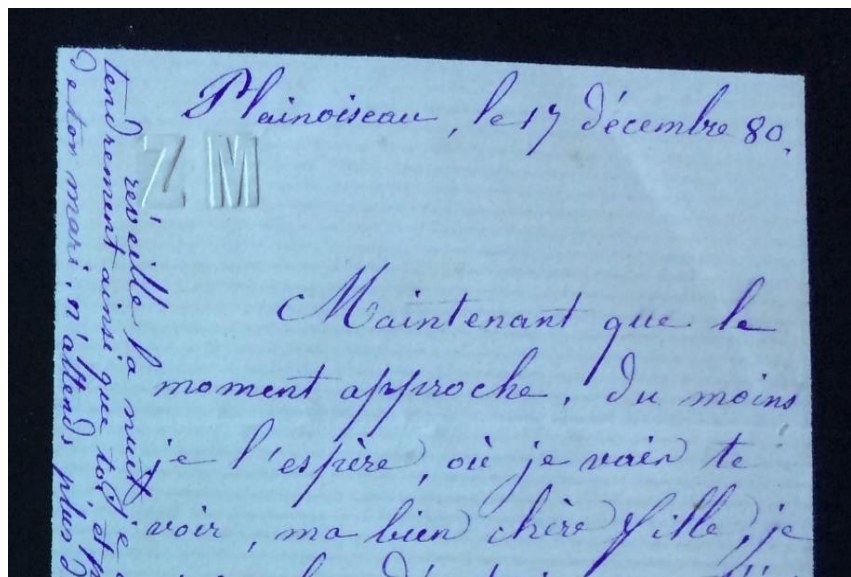 Plainoiseau, le 17 décembre 80.
Z M
Maintenant que le
moment approche, du moins
je l'espère, où je vais te
voir, ma bien chère fille, je
réveille la nuit
tendrement ainsi que toi, et
de ton mari, n'attends plus